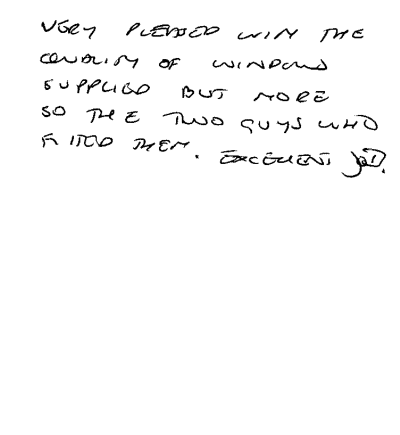 VERY PLEASED WITH THE
QUALITY OF WINDOWS
SUPPLIED BUT MORE
SO THE TWO GUYS WHO
FITTED THEM. EXCELLENT JOB.